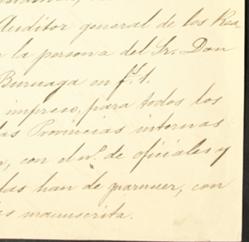 Auditor general de los Rea
la persona del Sr. Don
Beruaga en f. 1.
impreso, para todos los
as Provincias internas
, con el nº. de oficiales y
las han de guarnecer, con
manuscrita.